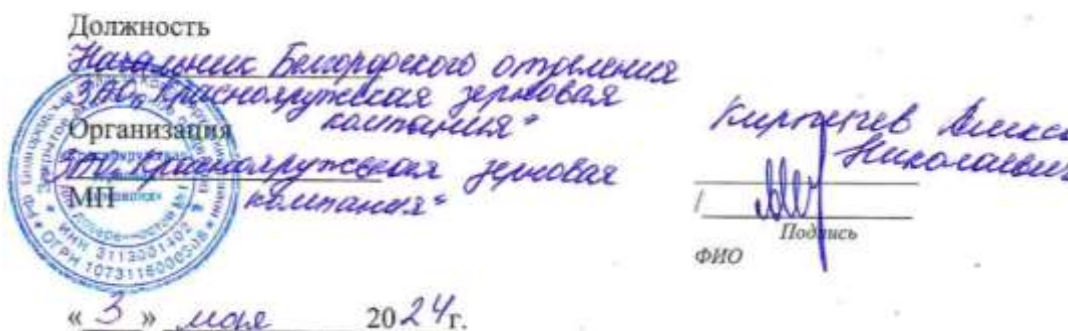 Должность
Начальник Белгородского отделения
ЗАО "Краснояружская зерновая
компания"
Организация
ЗАО "Краснояружская зерновая
компания"
МП
ИНН 3113001402
ОГРН
Алексе
Николаевич
/
Подпись
ФИО
« 3 » мая 2024 г.